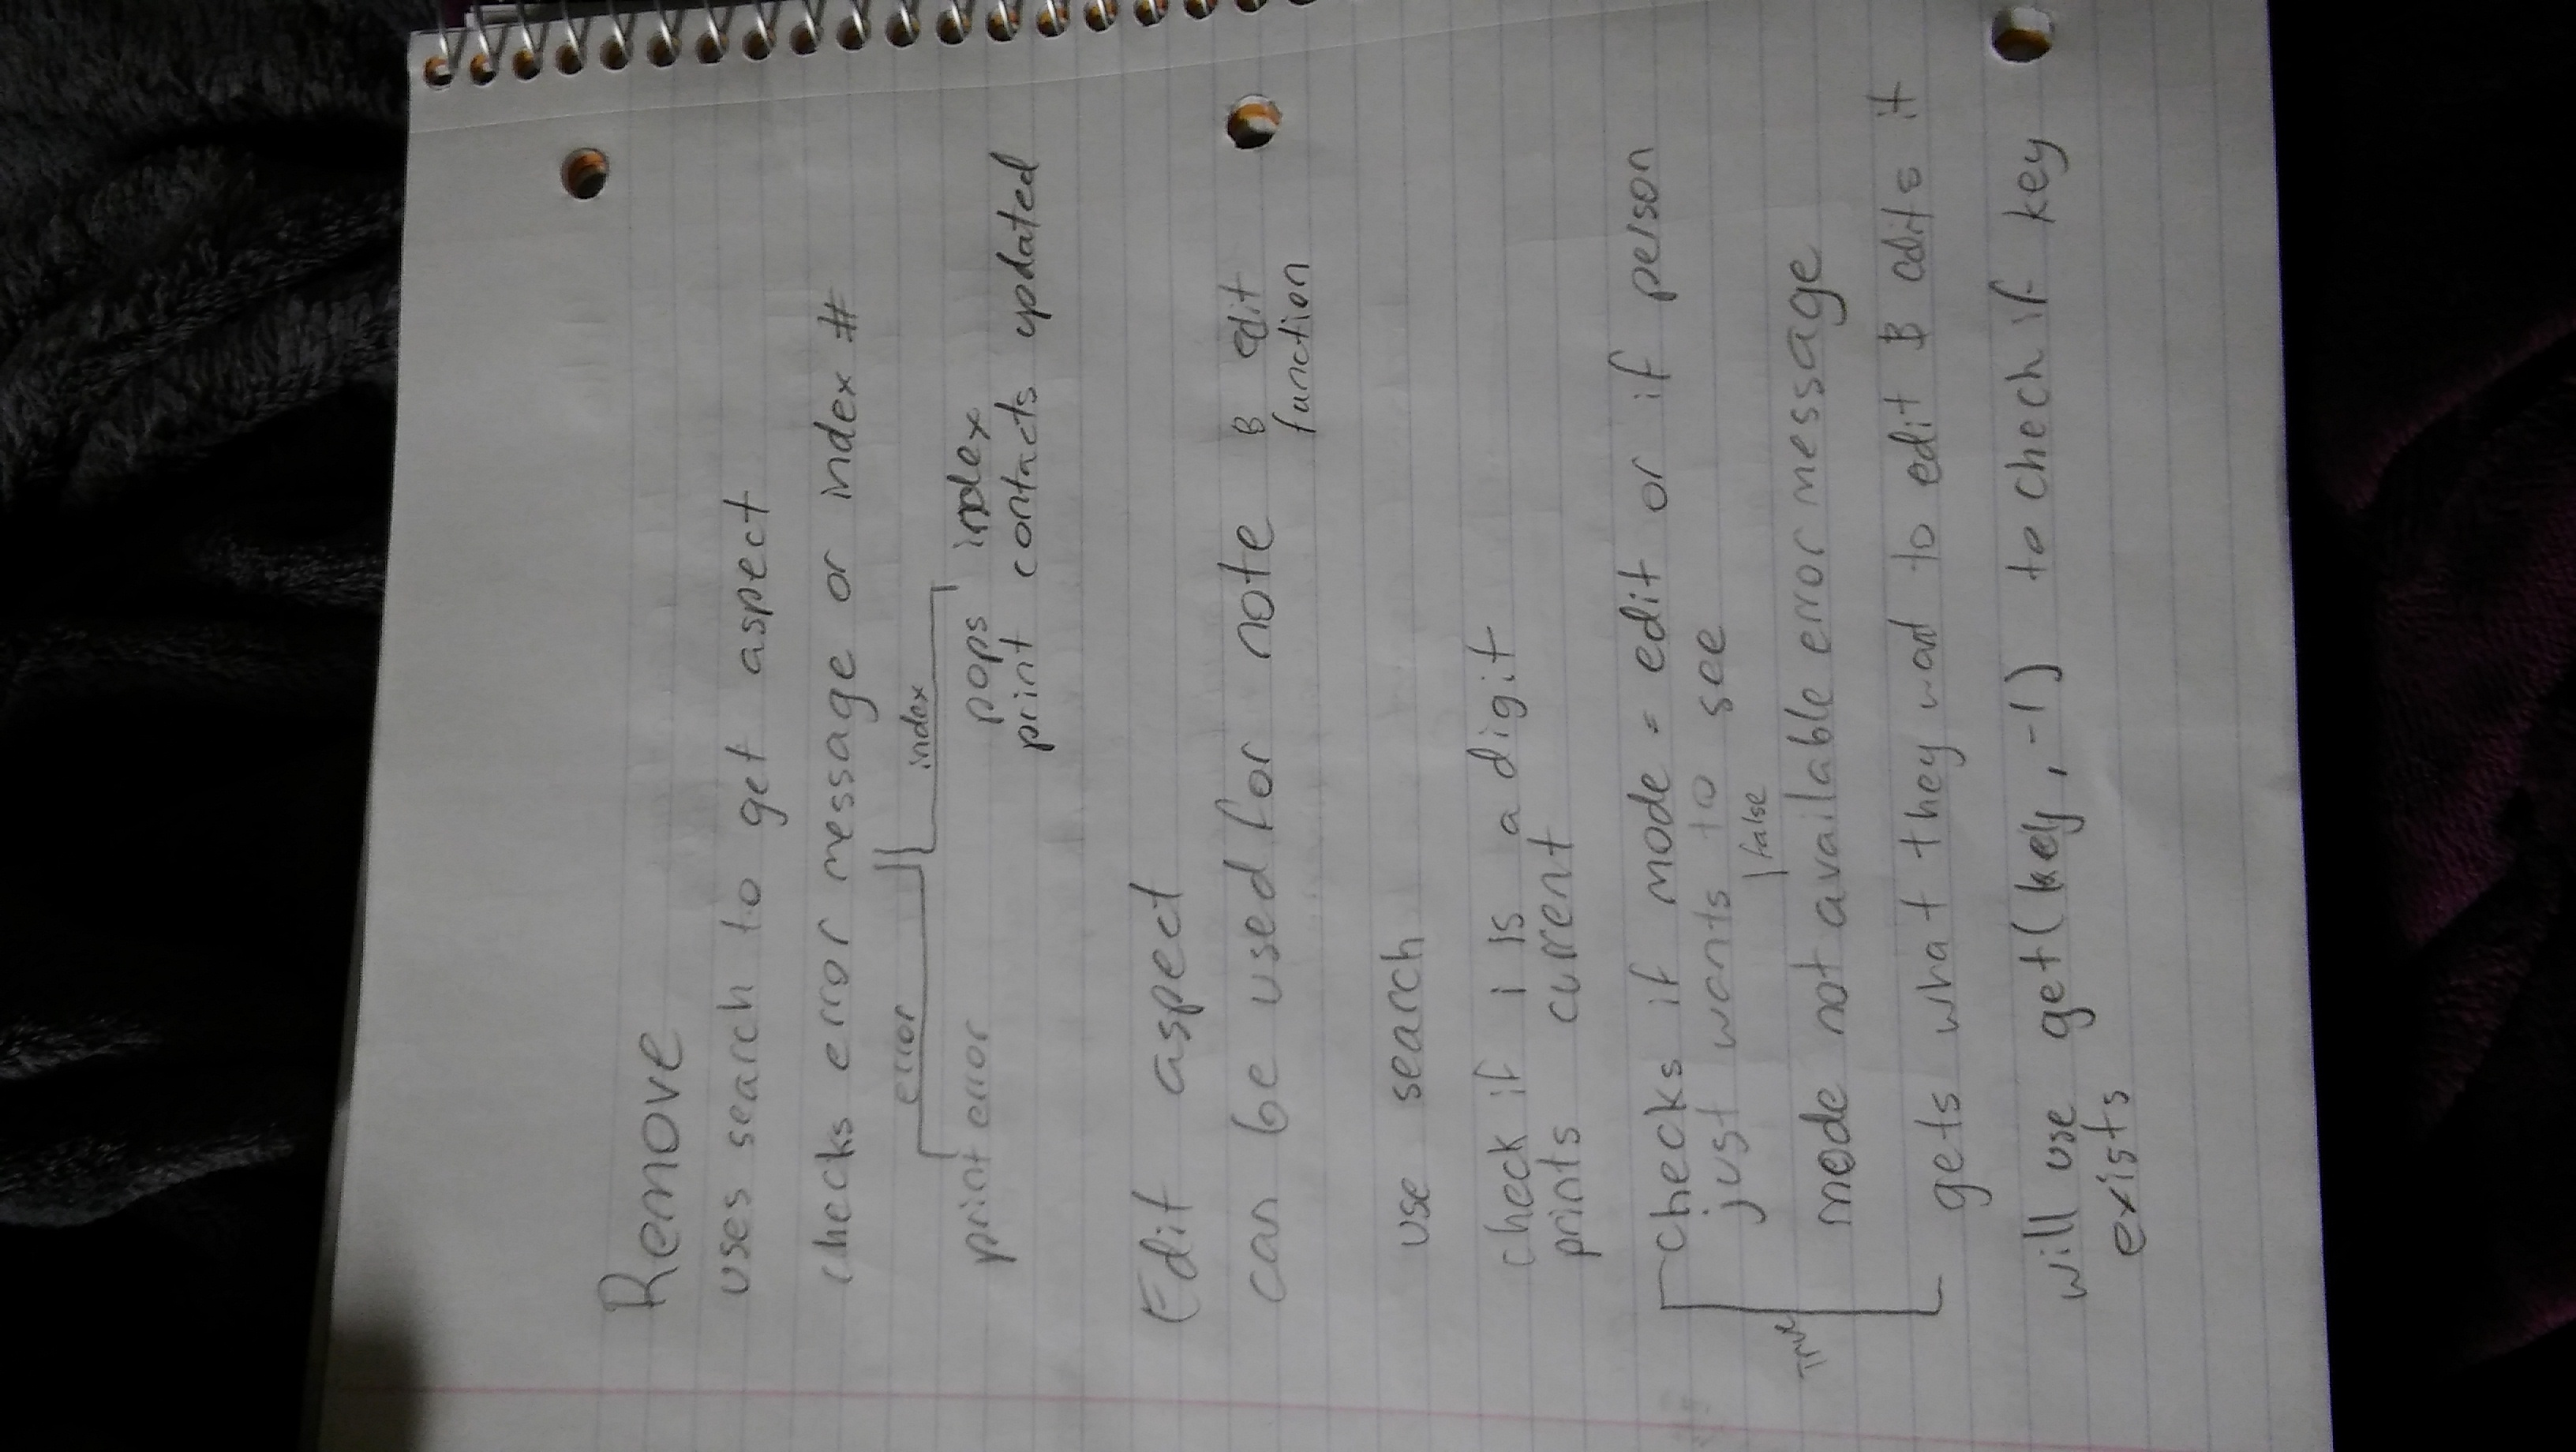 Remove
uses search to get aspect
checks error message or index #
error
index
print error
pops index
print contacts updated
Edit aspect
can be used for note & edit
function
use search
check if i is a digit
prints current
checks if mode = edit or if person
just wants to see
false
True
mode not available error message
gets what they want to edit & edits it
will use get(key, -1) to check if key
exists